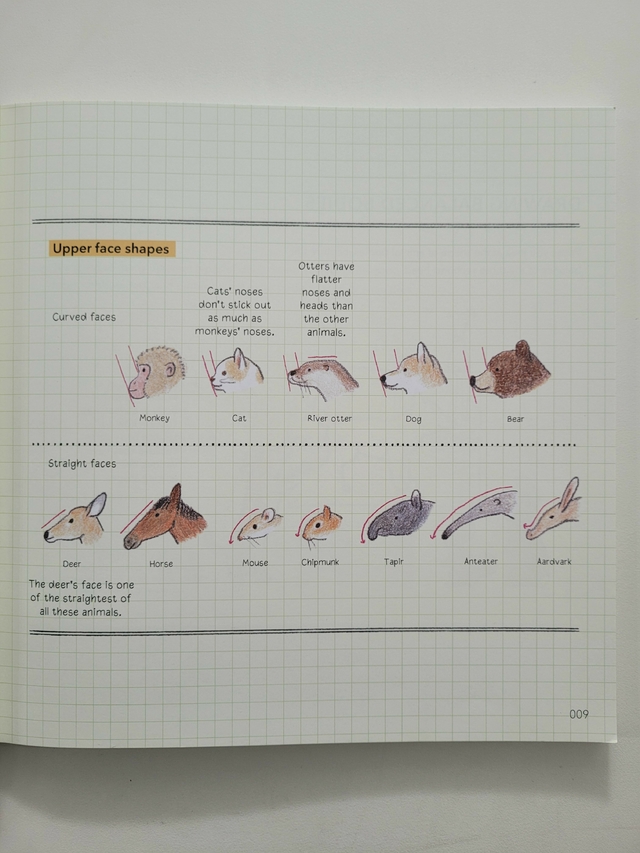 Upper face shapes
Otters have
flatter
noses and
heads than
the other
animals.
Cats' noses
don't stick out
as much as
monkeys' noses.
Curved faces
Monkey
Cat
River otter
Dog
Bear
Straight faces
Deer
Horse
Mouse
Chipmunk
Tapir
Anteater
Aardvark
The deer's face is one
of the straightest of
all these animals.
009